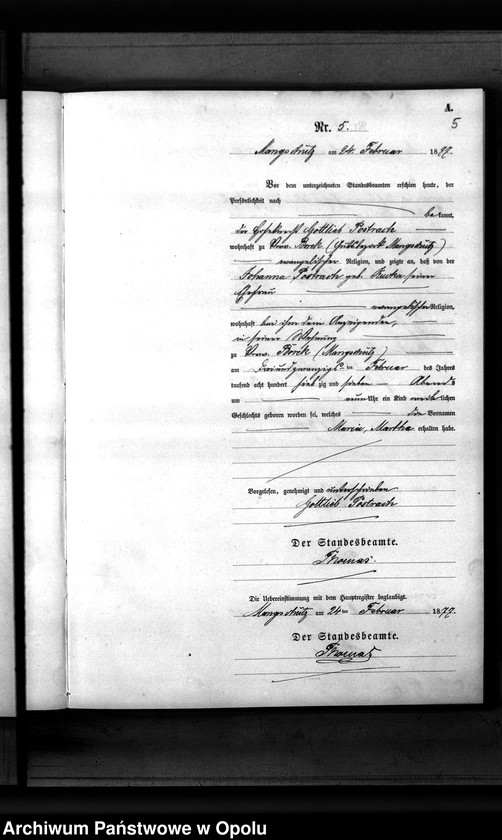 A.
5
Nr. 5.
Mangschütz am 24. Februar 1877.
Vor dem unterzeichneten Standesbeamten erschien heute, der
Persönlichkeit nach
bekannt,
der Gottlieb Postrach
wohnhaft zu Vorw. Borek (Gutsbezirk Mangschütz)
evangelischer Religion, und zeigte an, daß von der
Johanna Postrach geb. seiner
Ehefrau
evangelischer Religion,
wohnhaft bei ihm dem Anzeigenden,
in seiner Wohnung
zu Vorw. Borek (Mangschütz)
am dreiundzwanzigsten Februar des Jahres
tausend acht hundert siebzig und sieben Abends
um neun Uhr ein Kind weiblichen
Geschlechts geboren worden sei, welches die Vornamen
Maria, Martha erhalten habe.
Vorgelesen, genehmigt und unterschrieben
Gottlieb Postrach
Der Standesbeamte.
Thomas.
Die Uebereinstimmung mit dem Hauptregister beglaubigt.
Mangschütz am 24ten Februar 1877.
Der Standesbeamte.
Thomas
Archiwum Państwowe w Opolu